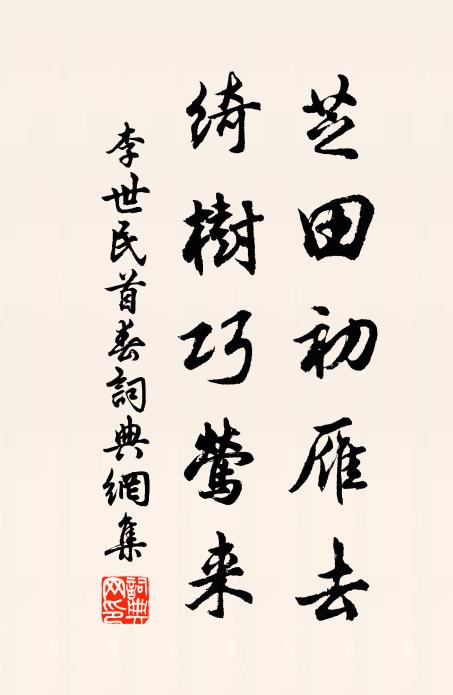 芝田初雁去
绮樹巧莺来
李世民首春詞典網集
詞典网印